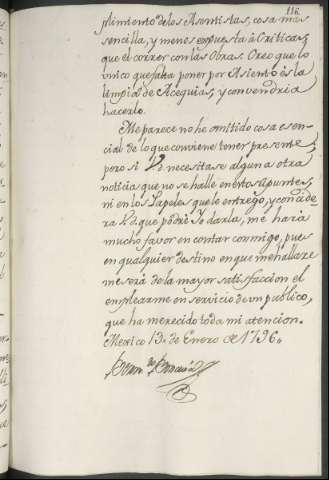 116.
plimiento de los Asentistas, cosa mas
sencilla, y menos expuesta à Criticas,
que el correr con las Obras. Creo que lo
unico que falta poner por Asiento ès la
limpia de Acequias, y convendria
hacerlo.
Me parece no he omitido cosa esen-
cial de lo que conviene tener presente,
pero si Vd. necesitase alguna otra
noticia que no se halle en estos apuntes,
ni en los Papeles que le entrego, y conside
ra Vd. que podrè Yo darla, me harà
mucho favor en contar conmigo, pues
en qualquier destino en que me hallare
me serà de la mayor satisfaccion el
emplearme en servicio de un publico,
que ha merecido toda mi atencion.
Mexico 13. de Enero de 1796.